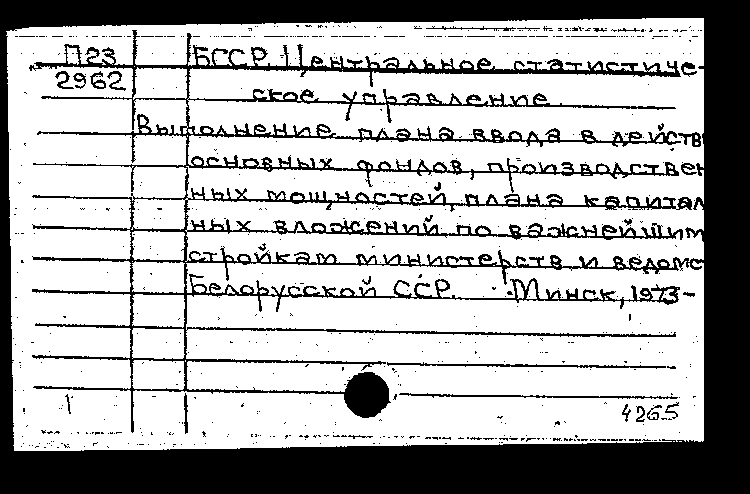 П23
2962
БССР. Центральное статистиче-
ское управление
Выполнение плана ввода в действ
основных фондов, производствен
ных мощностей, плана капитал
ных вложений по важнейшим
стройкам министерств и ведомс
Белорусской ССР. Минск, 1973-
4265